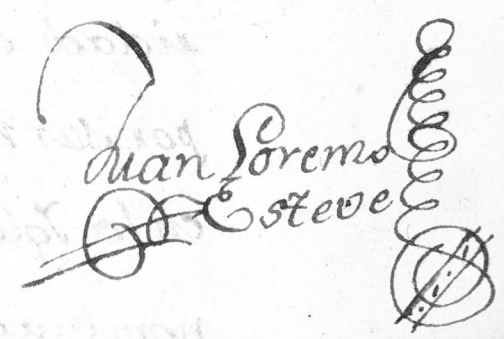 Juan Lorenso
Esteve